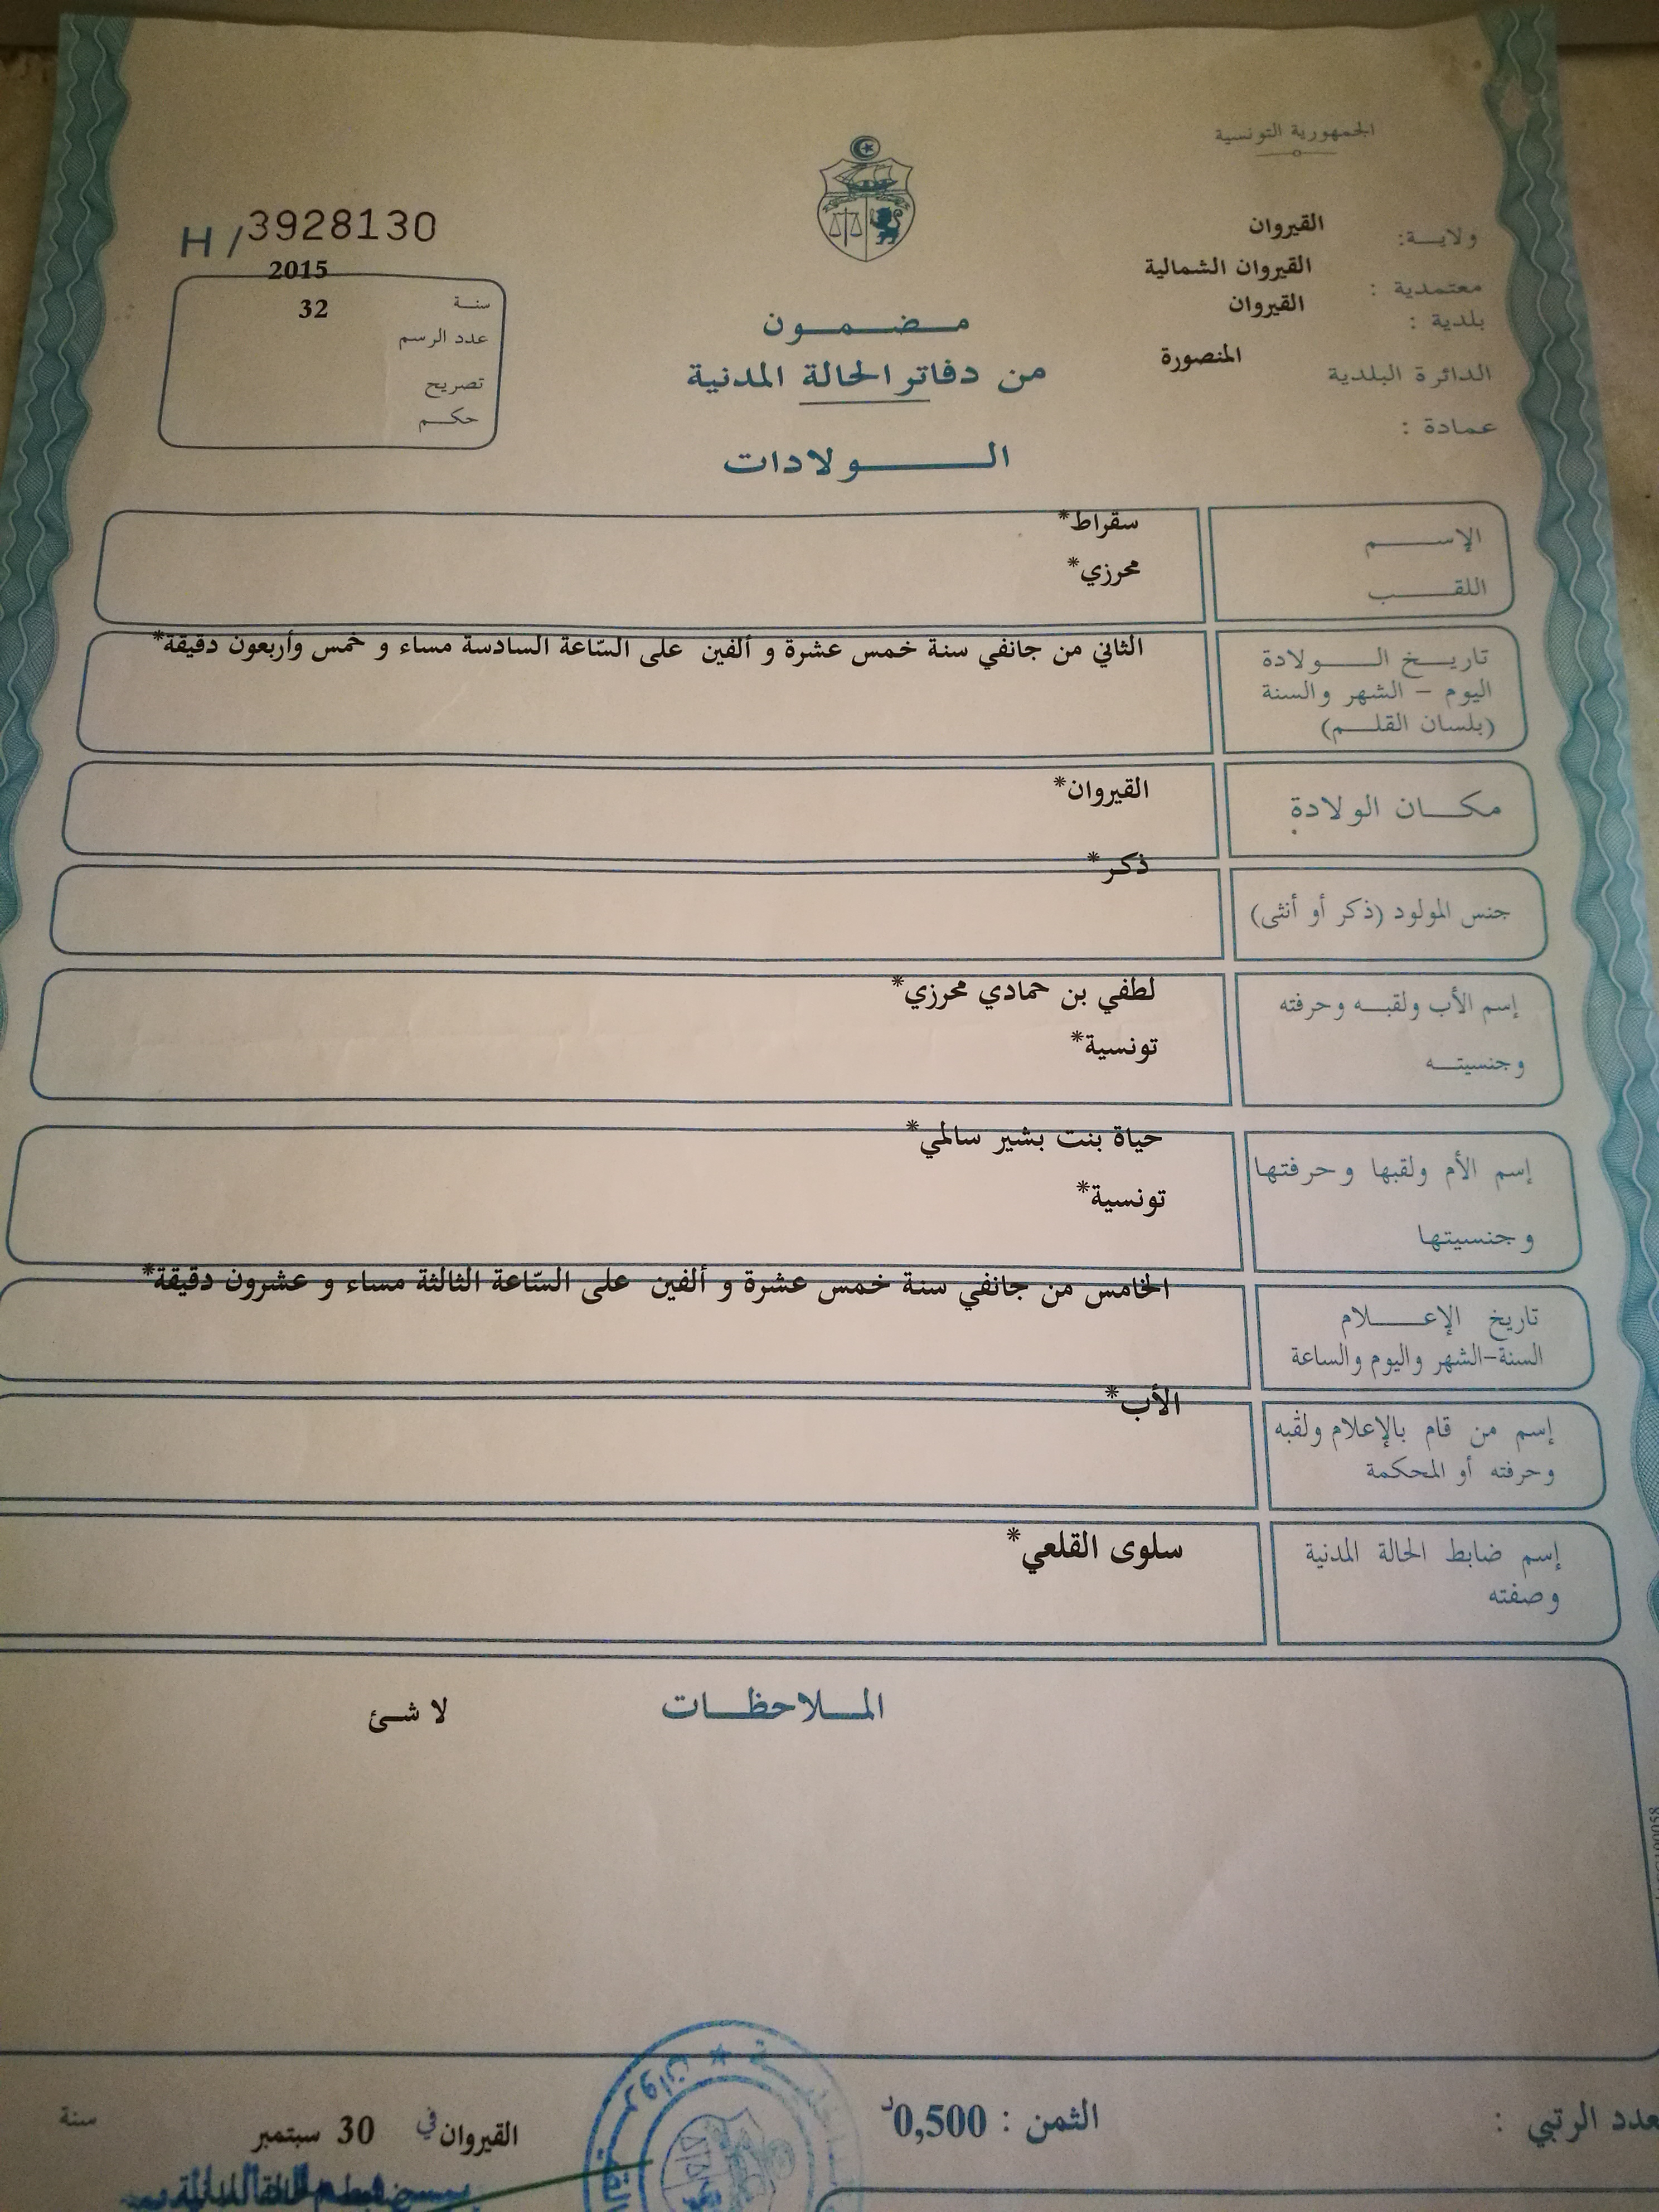 الجمهورية التونسية
ولايـــة: القيروان
معتمدية : القيروان الشمالية
بلدية : القيروان
الدائرة البلدية المنصورة
عمادة :
H / 3928130
سنة 2015
عدد الرسم 32
تصريح
حكم
مضمون
من دفاتر الحالة المدنية
الولادات
الإسم سقراط*
اللقب محرزي*
تاريخ الولادة الثاني من جانفي سنة خمس عشرة و ألفين على السّاعة السادسة مساء و خمس وأربعون دقيقة*
اليوم - الشهر والسنة
(بلسان القلم)
مكان الولادة القيروان*
جنس المولود (ذكر أو أنثى) ذكر*
إسم الأب ولقبه وحرفته لطفي بن حمادي محرزي*
وجنسيته تونسية*
إسم الأم ولقبها وحرفتها حياة بنت بشير سالمي*
وجنسيتها تونسية*
تاريخ الإعلام الخامس من جانفي سنة خمس عشرة و ألفين على السّاعة الثالثة مساء و عشرون دقيقة*
السنة-الشهر واليوم والساعة
إسم من قام بالإعلام ولقبه الأب*
وحرفته أو المحكمة
إسم ضابط الحالة المدنية سلوى القلعي*
وصفته
الملاحظات لا شئ
عدد الرتبي : الثمن : 0,500د
القيروان في 30 سبتمبر سنة